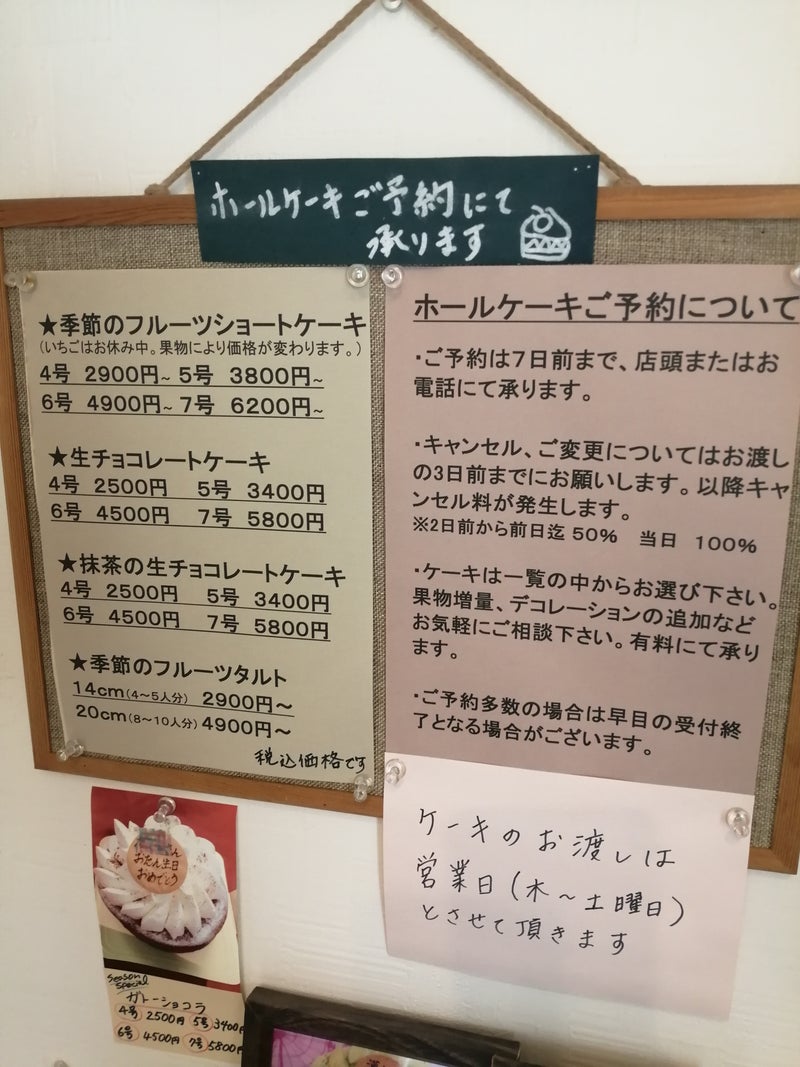 ホールケーキご予約にて
承ります
★季節のフルーツショートケーキ
(いちごはお休み中。果物により価格が変わります。)
4号 2900円~ 5号 3800円~
6号 4900円~ 7号 6200円~
★生チョコレートケーキ
4号 2500円 5号 3400円
6号 4500円 7号 5800円
★抹茶の生チョコレートケーキ
4号 2500円 5号 3400円
6号 4500円 7号 5800円
★季節のフルーツタルト
14cm(4~5人分) 2900円~
20cm(8~10人分) 4900円~
税込価格です
ホールケーキご予約について
・ご予約は7日前まで、店頭またはお
電話にて承ります。
・キャンセル、ご変更についてはお渡し
の3日前までにお願いします。以降キャ
ンセル料が発生します。
※2日前から前日迄 50% 当日 100%
・ケーキは一覧の中からお選び下さい。
果物増量、デコレーションの追加など
お気軽にご相談下さい。有料にて承り
ます。
・ご予約多数の場合は早目の受付終
了となる場合がございます。
ケーキのお渡しは
営業日(木~土曜日)
とさせて頂きます
さん
おたん生日
おめでとう
Season
Special
ガトーショコラ
4号 2500円 5号 3400円
6号 4500円 7号 5800円